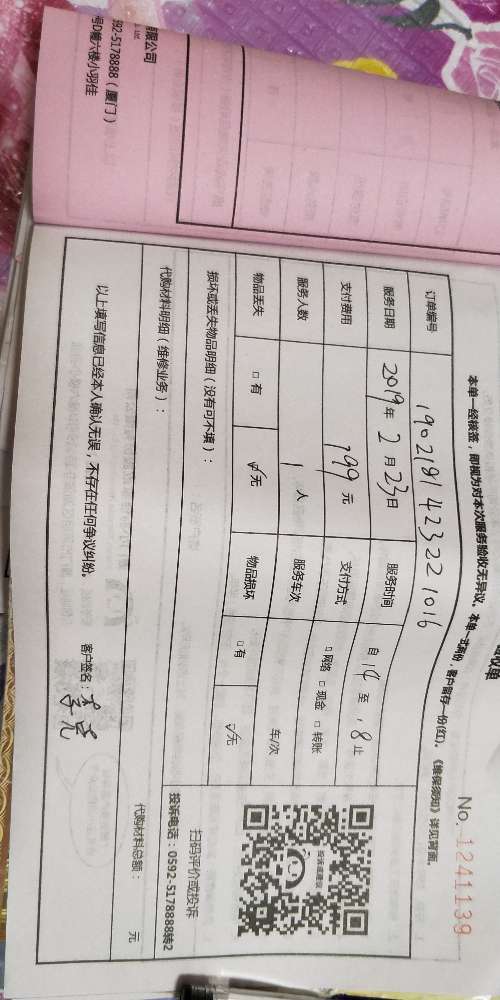 限公司
592-5178888（厦门）
号D幢六楼小羽佳
收单
No. 1241139
本单一经核签，即视为对本次服务验收无异议。本单一式两份，客户留存一份(红)。《维保须知》详见背面。
订单编号 1902181423221016
服务日期 2019年 2月23日 服务时间 自 14 至 18 止
支付费用 199 元 支付方式 □ 网络 □ 现金 □ 转账
服务人数 1 人 服务车次 车/次
物品丢失 □ 有 ☑无 物品损坏 □ 有 ☑无
损坏或丢失物品明细（没有可不填）：
扫码评价或投诉
投诉电话：0592-5178888转2
代购材料明细（维修业务）： 代购材料总额： 元
以上填写信息已经本人确认无误，不存在任何争议纠纷。 客户签名：